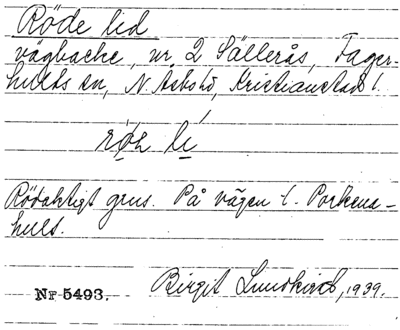 Röde lid
vägbacke, nr 2 Sällerås, Fager-
hults sn, N. Åsbo hd, Kristianstads l.
Rödaktigt grus. På vägen t. Porkens-
hult.
Nr 5493. Birgit Lundkvist, 1939.